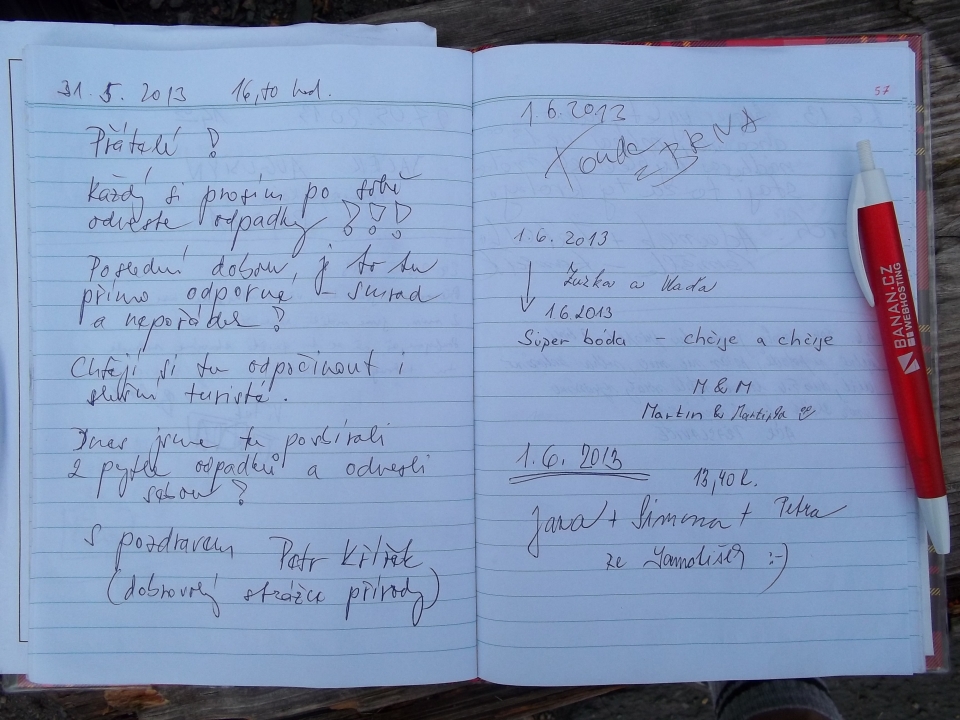 31. 5. 2013 16,10 hod.
Přátelé !
Každý si prosím po sobě
odveste odpadky !!!
Poslední dobou, je to tu
přímo odporné - smrad
a nepořádek !
Chtějí si tu odpočinout i
slušní turisté.
Dnes jsme tu posbírali
2 pytle odpadků a odvezli
sebou !
S pozdravem Petr Křížek
(dobrovolný strážce přírody)
57
1.6.2013
Tonda
z BRNA
1.6.2013
Zuzka a Vlaďa
1.6.2013
Super bóda - chčije a chčije
M & M
Martin & Martinka
1.6. 2013
13,40 h.
Jana + Simona + Petra
ze :-)
BANAN.CZ
WEBHOSTING